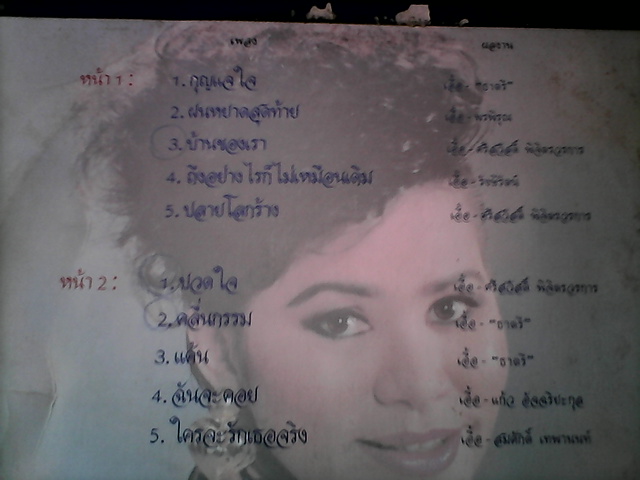 เพลง ผลงาน
หน้า 1 : 1. กุญแจใจ เอื้อ - "ธาตรี"
2. ฝนหยาดสุดท้าย เอื้อ - พรพิรุณ
3. บ้านของเรา เอื้อ - ศรีสวัสดิ์ พิจิตรวรการ
4. ถึงอย่างไรก็ไม่เหมือนเดิม เอื้อ -
5. ปลายโลกร้าง เอื้อ - ศรีสวัสดิ์ พิจิตรวรการ
หน้า 2 : 1. ปวดใจ เอื้อ - ศรีสวัสดิ์ พิจิตรวรการ
2. คลื่นกรรม เอื้อ - "ธาตรี"
3. แค้น เอื้อ - "ธาตรี"
4. ฉันจะคอย เอื้อ - แก้ว อัจฉริยะกุล
5. ใครจะรักเธอจริง เอื้อ - สมศักดิ์ เทพานนท์